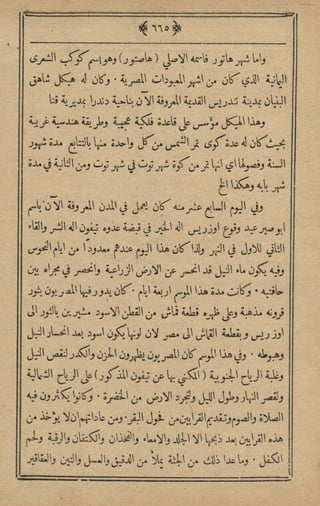 ﴿ ٦٦٥ ﴾
واما شهر هاتور فاسمه الاصلي (هاصتور) وهو اسم كوكب الشعرى
اليمانية الذي كان من اشهر المعبودات المصرية. وكان له هيكل شاهق
البنيان بمدينة تنتريس القديمة المعروفة الآن بناحية دندرا بمديرية قنا
وهذا الهيكل مؤسس على قاعدة فلكية عجيبة وطريقة هندسية غريبة
بحيث كان له عدة كوى تمر الشمس من كل واحدة منها بالتتابع مدة شهور
السنة وفصولها اي انها تمر من كوة شهر توت في شهر توت ومن الثانية في مدة
شهر بابه وهكذا الخ
وفي اليوم السابع عشر منه كان يعمل في المدن المعروفة الآن باسم
ابو صير عيد وقوع اوزريس اله الخير في قبضة عدوه تيفون اله الشر والقاء
الثاني للاول في النهر ولذا كان هذا اليوم عندهم معدودًا من ايام النحوس
وفيه يكون ماء النيل قد انحسر عن الارض الزراعية وانحصر في مجراه بين
حافتيه. وكانت مدة هذا الموسم اربعة ايام. كان يدور فيها المصريون بثور
قرونه مذهبة وعلى ظهره قطعة قماش من القطن الاسود مشيرين بالثور الى
اوزريس وبقطعة القماش الى مصر لان لونها يكون اسود بعد انحسار النيل
وهبوطه. وفي هذا الموسم كان المصريون يظهرون الحزن والكدر لنقص النيل
وغلبة الرياح الجنوبية (المكني بها عن تيفون المذكور) على الرياح الشمالية
ولقصر النهار وطول الليل ولتجرد الارض من الخضرة. وكانوا يكثرون فيه
الصلاة والصوم وتقديم القرابين من فحول البقر. ومن عاداتهم ان لا يؤخذ من
هذه القرابين بعد ذبحها الا الجلد والامعاء والفخذان والكتفان والرقبة ولحم
الكفل. وما عدا ذلك من الجثة يملأ من الدقيق والعسل والتين والعقاقير